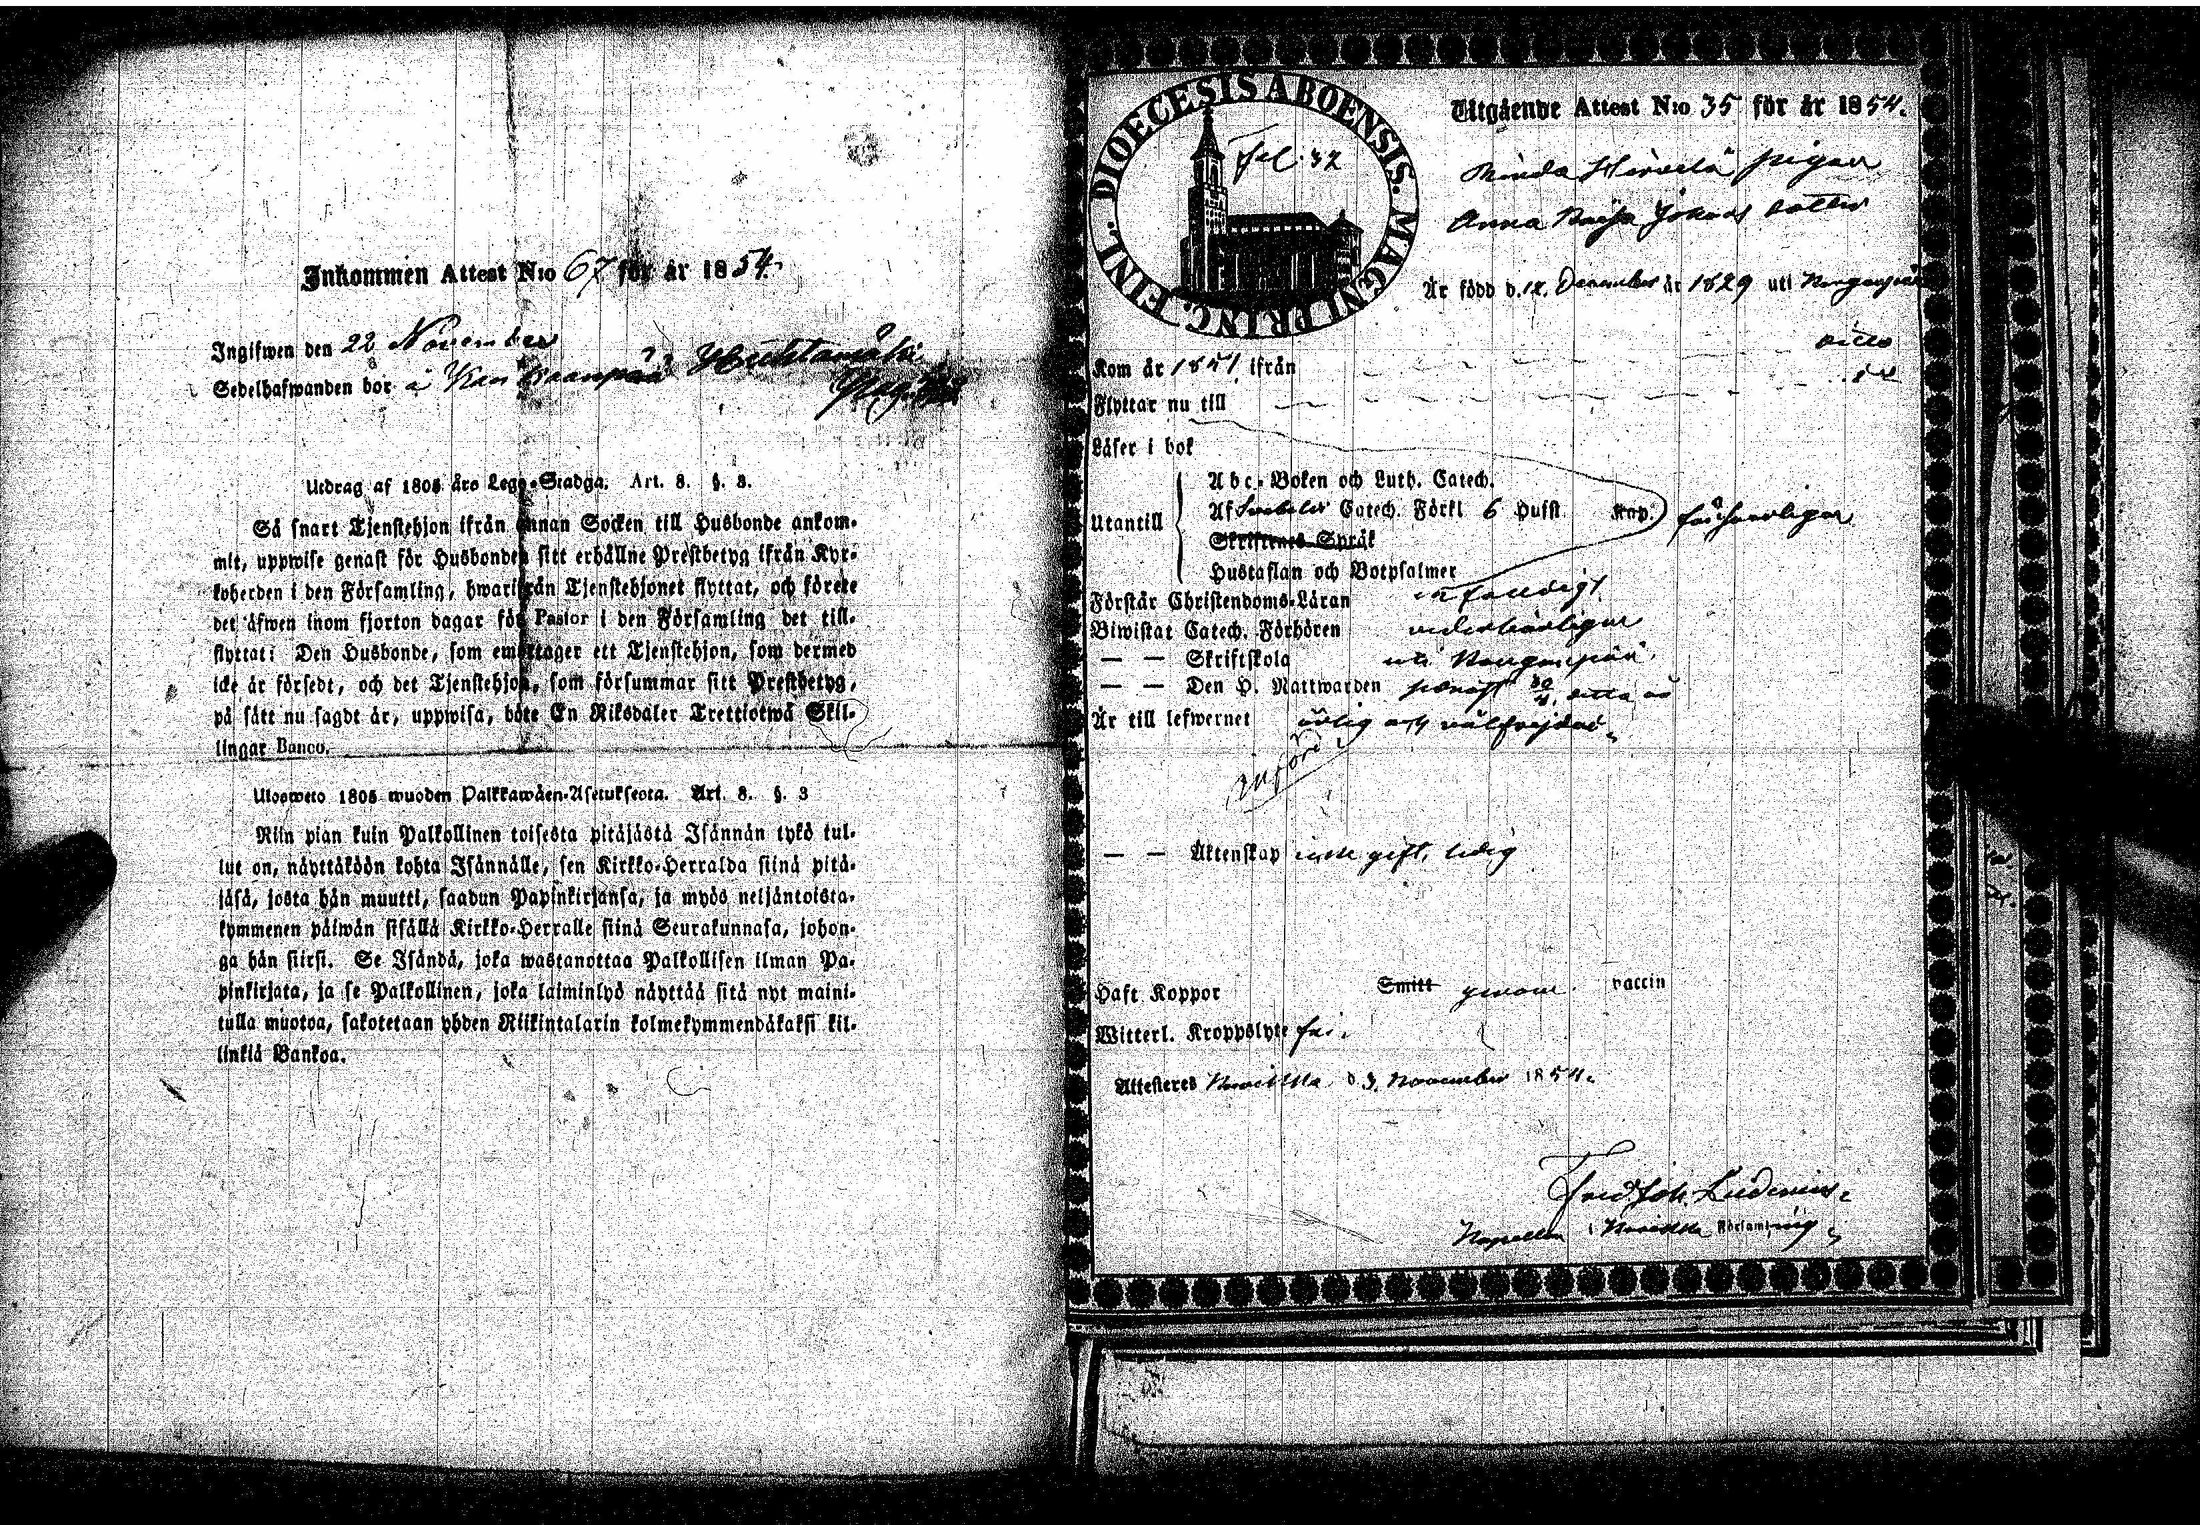 Inkommen Attest N:o 67 för år 1854.
Ingifwen den 22 November
Sedelhafwanden bor å Kankaanpää Huhtamäki
Utdrag af 1805 års Lego-Stadga. Art. 8. §. 3.
Så snart Tjenstehjon ifrån annan Socken till Husbonde ankom-
mit, uppwise genast för Husbonden sitt erhållne Prestbetyg ifrån Kyr-
koherden i den Församling, hwarifrån Tjenstehjonet flyttat, och förete
det äfwen inom fjorton dagar för Pastor i den Församling det till-
flyttat: Den Husbonde, som emottager ett Tjenstehjon, som dermed
icke är försedt, och det Tjenstehjon, som försummar sitt Prestbetyg,
på sätt nu sagdt är, uppwisa, böte En Riksdaler Trettiotwå Skil-
lingar Banco.
Ulosweto 1805 wuoden Palkkawäen-Asetuksesta. Art. 8. §. 3
Niin pian kuin Palkollinen toisesta pitäjästä Isännän tykö tul-
lut on, näyttäköön kohta Isännälle, sen Kirkko-Herralda siinä pitä-
jäsä, josta hän muutti, saadun Papinkirjansa, ja myös neljäntoista-
kymmenen päiwän sisällä Kirkko-Herralle siinä Seurakunnasa, johon-
ga hän siirsi. Se Isändä, joka wastanottaa Palkollisen ilman Pa-
pinkirjata, ja se Palkollinen, joka laiminlyö näyttää sitä nyt maini-
tulla muotoa, sakotetaan yhden Riikintalarin kolmekymmendäkaksi kil-
linkiä Bankoa.
DIOECESIS ABOENSIS. MAGNI PRINC. FINL.
Fol. 32
Utgående Attest N:o 35 för år 1854.
Hirvelä pigan
Anna Johans dotter
Är född d. 12. December år 1829 uti
Kom år 1851 ifrån ditto
Flyttar nu till
Läser i bok
Utantill
Abc-Boken och Luth. Catech.
Af Svebelii Catech. Förkl 6 Hufst. Kap.
Skriftenes Språk
Hustaflan och Botpsalmer
Förstår Christendoms-Läran
Biwistat Catech. Förhören vederbörligen
— — Skriftskola uti
— — Den H. Nattwarden
Är till lefwernet ärlig och välfrejdad.
införd
— — Äktenskap icke gift, ledig
Haft Koppor Smitt genom vaccin
Witterl. Kroppslyte fri.
Attesteres d. 3. November 1854.
Fred Joh.
Kapellan i Församling